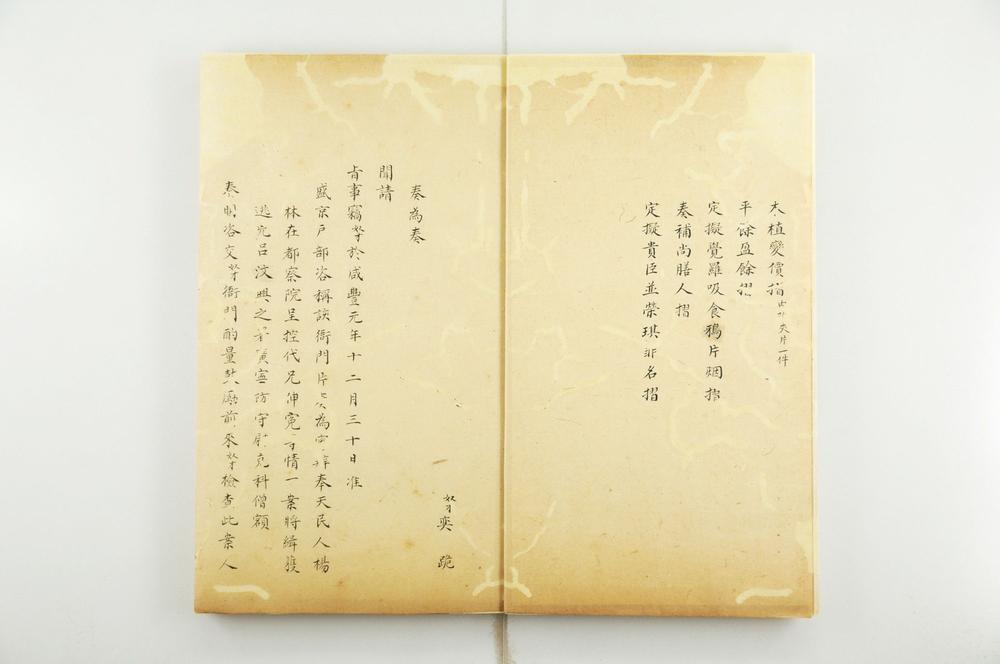 木植變價摺 夾片一件
平餘盈餘摺
定擬覺羅吸食鴉片烟摺
奏補尚膳人摺
定擬貴臣並榮琪 名摺
奴才奕 跪
奏為奏
聞請
旨事竊奴才於咸豐元年十二月三十日准
盛京戶部咨稱該衙門片 為 奉天民人楊
林在都察院呈控代兄伸寃 情一案將緝獲
逃兇呂汶興之 廣寧防守尉克科僧額
奏明咨交奴才衙門酌量 前來奴才檢查此案人